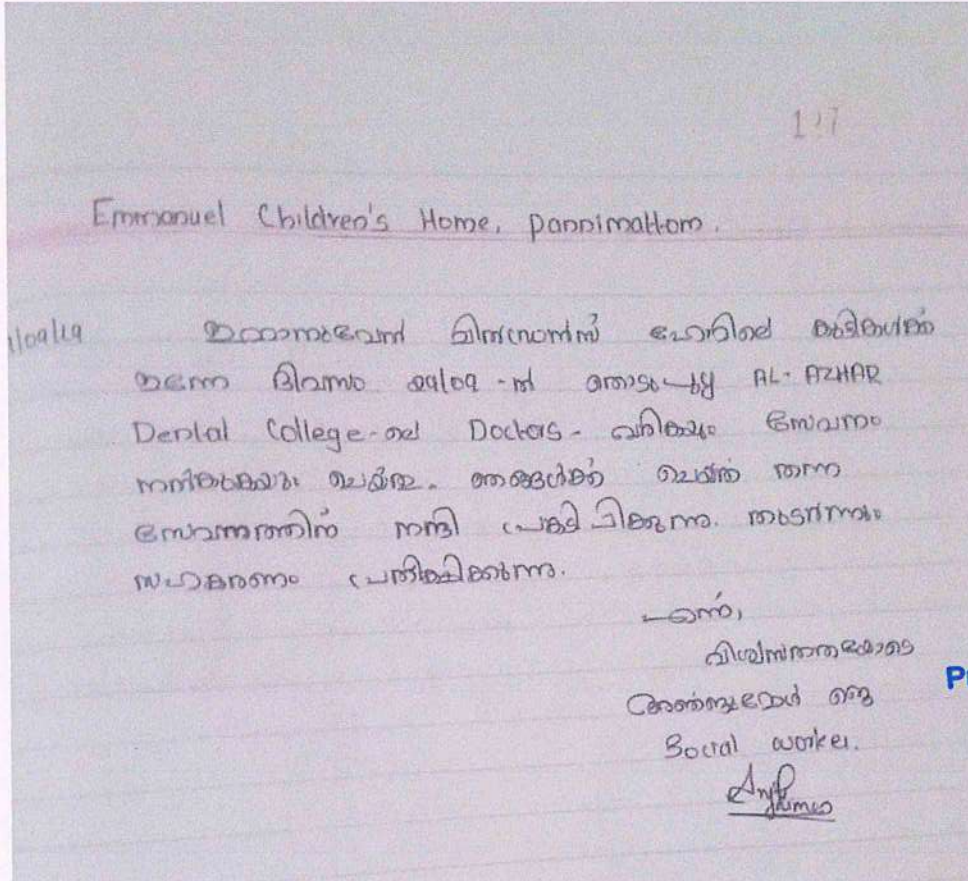 Emmanuel Children's Home, pannimattom.
ഇമ്മാനുവേൽ ചിൽഡ്രൻസ് ഹോമിലെ കുട്ടികൾക്ക്
ഇന്നേ ദിവസം -ൽ തൊടുപുഴ AL-AZHAR
Dental College-ലെ Doctors - വരികയും സേവനം
നൽകുകയും ചെയ്തു. ഞങ്ങൾക്ക് ചെയ്ത് തന്ന
സേവനത്തിന് നന്ദി പ്രകടിപ്പിക്കുന്നു. തുടർന്നും
സഹകരണം പ്രതീക്ഷിക്കുന്നു.
എന്ന്,
വിശ്വസ്തതയോടെ
Social worker.